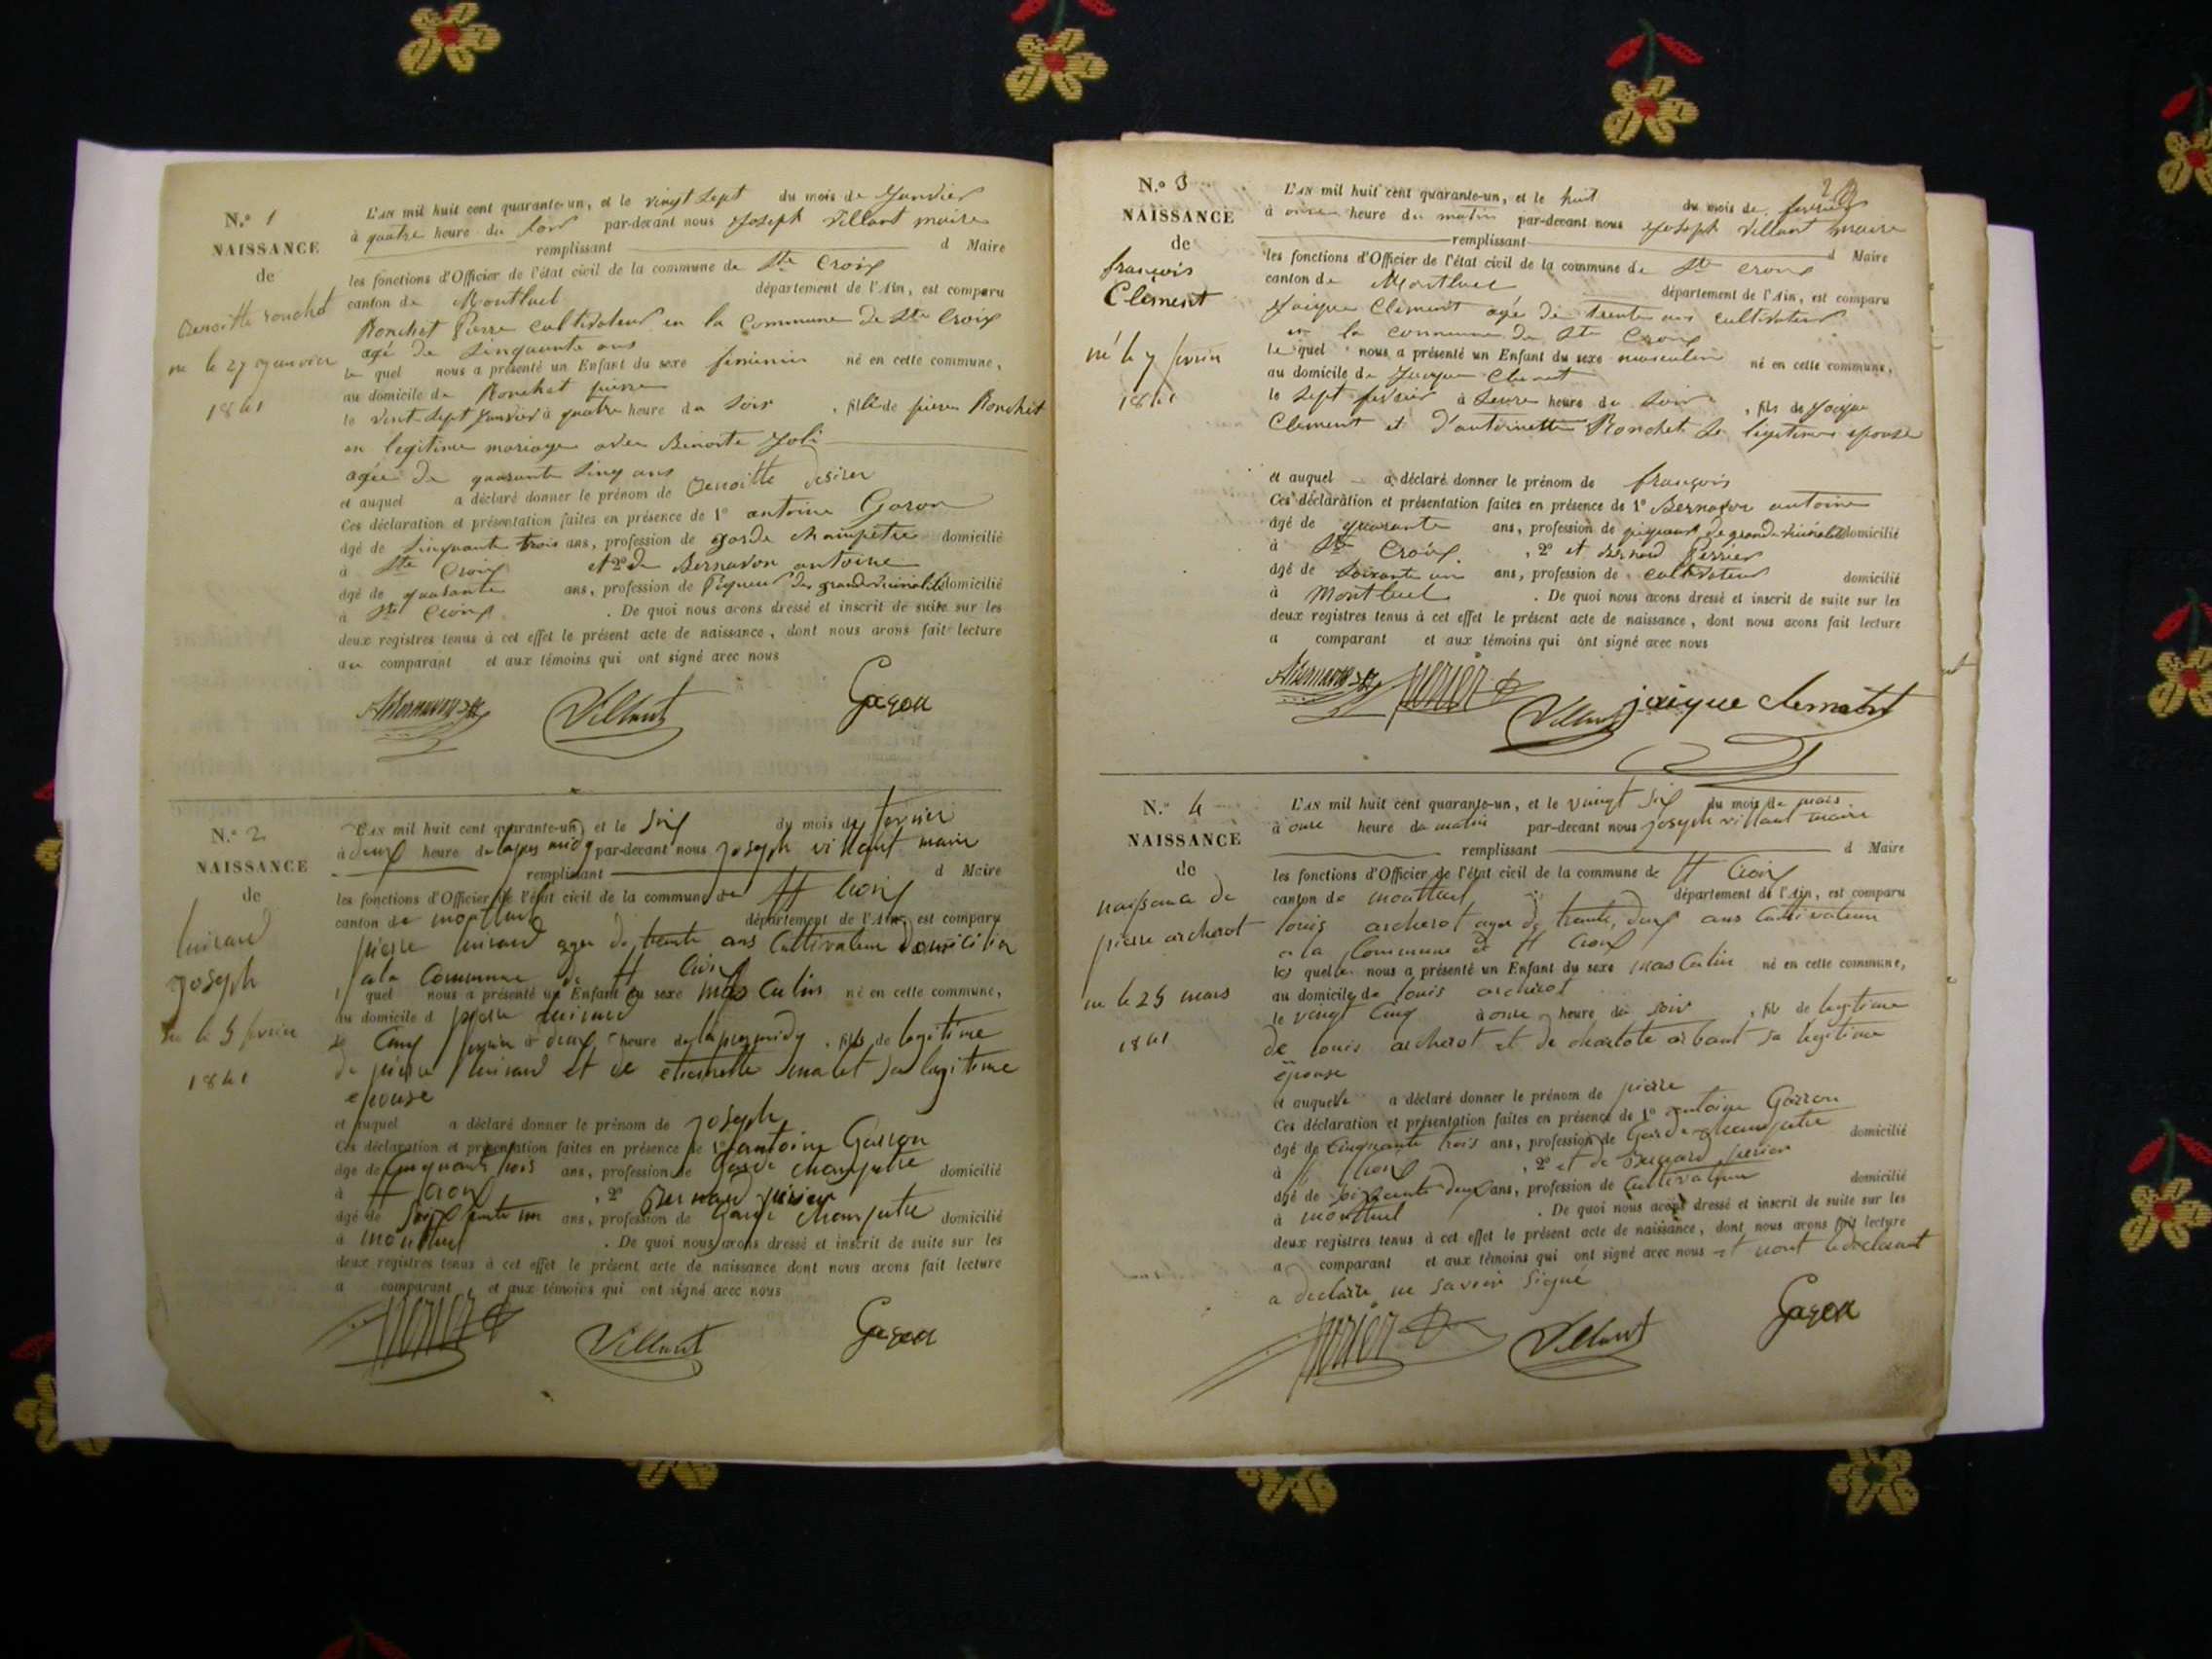 N.º 1
NAISSANCE
de
Benoitte ronchet
né le 27 janvier
1841
L'AN mil huit cent quarante-un, et le vingt sept du mois de Janvier
à quatre heure du soir par-devant nous Joseph Villant maire
remplissant d Maire
les fonctions d'Officier de l'état civil de la commune de Ste Croix
canton de Montluel département de l'Ain, est comparu
Ronchet Pierre cultivateur en la Commune de Ste Croix
agé de Sinquante ans
le quel nous a présenté un Enfant du sexe feminin né en cette commune,
au domicile de Ronchet pierre
le vint Sept Janvier à quatre heure du Soir , fille de pierre Ronchet
en legitime mariage avec Benoite Joli
agée de quarante Sinq ans
et auquel a déclaré donner le prénom de Benoitte desirer
Ces déclaration et présentation faites en présence de 1º antoine Garon
âgé de Sinquante trois ans, profession de garde champetre domicilié
à Ste Croix et 2º de Bernavon antoine
âgé de quarante ans, profession de Piqueur des grande vicinalité domicilié
à Ste Croix . De quoi nous avons dressé et inscrit de suite sur les
deux registres tenus à cet effet le présent acte de naissance, dont nous avons fait lecture
au comparant et aux témoins qui ont signé avec nous
ABernavon Villant Garon
N.º 2
NAISSANCE
de
Joseph
né le 5 fevrier
1841
L'AN mil huit cent quarante-un, et le Six du mois de fevrier
à deux heure de lapres midy par-devant nous Joseph villant maire
remplissant d Maire
les fonctions d'Officier de l'état civil de la commune de St Croix
canton de montluel département de l'Ain, est comparu
pierre ager de trente ans Cultivateur domicilier
a la Commune de St Croix
l quel nous a présenté un Enfant du sexe mas Culin né en cette commune,
au domicile d pierre
le Cinq fevrier à deux heure de lapres midy , fils de legitime
de pierre et de etiennette malet Sa lagitime
epouse
et auquel a déclaré donner le prénom de Joseph
Ces déclaration et présentation faites en présence de 1º antoine Garron
âgé de Cinquante trois ans, profession de Garde Champetre domicilié
à St Croix , 2º Bernard perier
âgé de Soixante un ans, profession de Garde Champetre domicilié
à montluel . De quoi nous avons dressé et inscrit de suite sur les
deux registres tenus à cet effet le présent acte de naissance dont nous avons fait lecture
a comparant et aux témoins qui ont signé avec nous
perier Villant Garon
N.º 3
NAISSANCE
de
françois
Clément
né le 7 fevrier
1841
L'AN mil huit cent quarante-un, et le huit du mois de fevrier
à onze heure du matin par-devant nous Joseph Villant maire
remplissant d Maire
les fonctions d'Officier de l'état civil de la commune de Ste Croix
canton de Montluel département de l'Ain, est comparu
Jaique Clement agé de trente ans cultivateur
en la commune de Ste Croix
le quel nous a présenté un Enfant du sexe masculin né en cette commune,
au domicile de Jaique Clement
le Sept fevrier à heure du Soir , fils de Jaique
Clement et d'antoinette Ronchet Sa légitime epouse
et auquel a déclaré donner le prénom de françois
Ces déclaration et présentation faites en présence de 1º Bernavon antoine
âgé de quarante ans, profession de piqueur de grande vicinalité domicilié
à Ste Croix , 2º et Bernard Perrier
âgé de Soixante un ans, profession de cultivateur domicilié
à Montluel . De quoi nous avons dressé et inscrit de suite sur les
deux registres tenus à cet effet le présent acte de naissance, dont nous avons fait lecture
a comparant et aux témoins qui ont signé avec nous
ABernavon perier Villant jaique clement
N.º 4
NAISSANCE
de
naissance de
pierre archerot
né le 25 mars
1841
L'AN mil huit cent quarante-un, et le vingt Six du mois de mars
à onze heure du matin par-devant nous joseph villant maire
remplissant d Maire
les fonctions d'Officier de l'état civil de la commune de St Croix
canton de montluel département de l'Ain, est comparu
louis archerot ager de trente deux ans Cultivateur
a la Commune de St Croix
le quel nous a présenté un Enfant du sexe mas Culin né en cette commune,
au domicile de louis archerot
le vingt Cinq à onze heure du soir , fils de legitime
de louis archerot et de charlote arbant sa legitime
épouse
et auquel a déclaré donner le prénom de pierre
Ces déclaration et présentation faites en présence de 1º antoine Garron
âgé de Cinquante trois ans, profession de Garde champetre domicilié
à St Croix , 2º et de Bernard perier
âgé de Soixante deux ans, profession de Cultivateur domicilié
à montluel . De quoi nous avons dressé et inscrit de suite sur les
deux registres tenus à cet effet le présent acte de naissance, dont nous avons fait lecture
a comparant et aux témoins qui ont signé avec nous et nont le declarant
a declare ne savoir Signé
perier Villant Garon